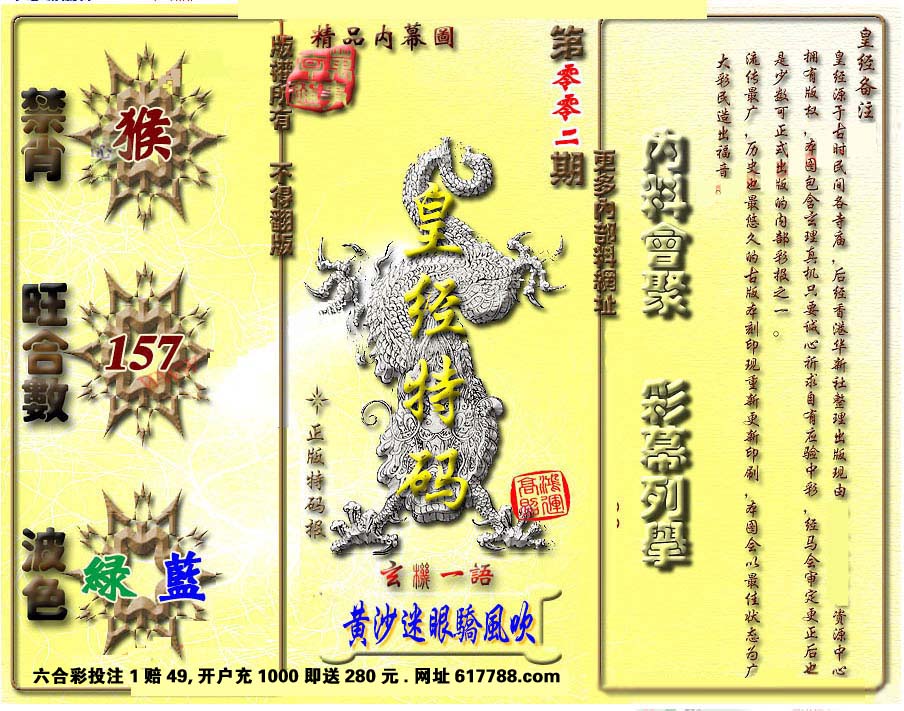 禁肖
猴
旺合數
157
波色
綠 藍
版權所有 不得翻版
精品内幕圖
第零零二期
皇经特码
正版特码报
鴻運高照
玄機一語
黃沙迷眼驕風吹
更多內部料網址
内料會聚 彩幕列舉
皇经备注
皇经源于古时民间各寺庙,后经香港华新社整理出版现由 资源中心
拥有版权,本图包含玄理真机只要诚心祈求自有应验中彩,经马会审定更正后也
是少数可正式出版的内部彩报之一。
流传最广,历史也最悠久的古版本刻印现重新更新印刷,本图会以最佳状态为广
大彩民造出福音
六合彩投注 1 赔 49, 开户充 1000 即送 280 元 . 网址 617788.com